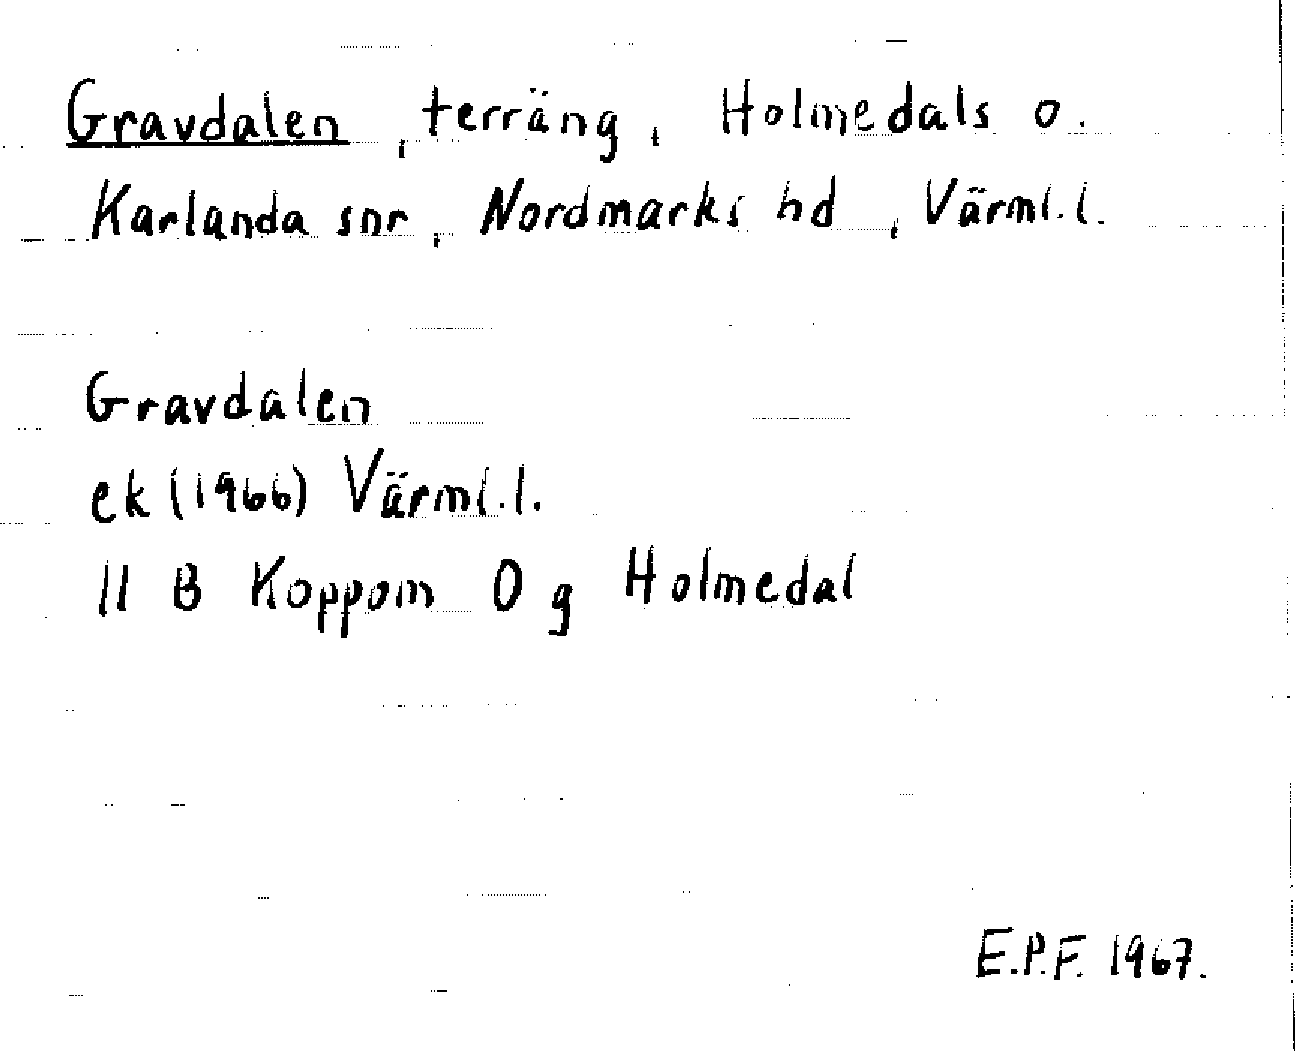 Gravdalen, terräng, Holmedals o.
Karlanda snr, Nordmarks hd, Värml.l.
Gravdalen
ek (1966) Värml.l.
11 B Koppom 0 g Holmedal
E.P.F. 1967.